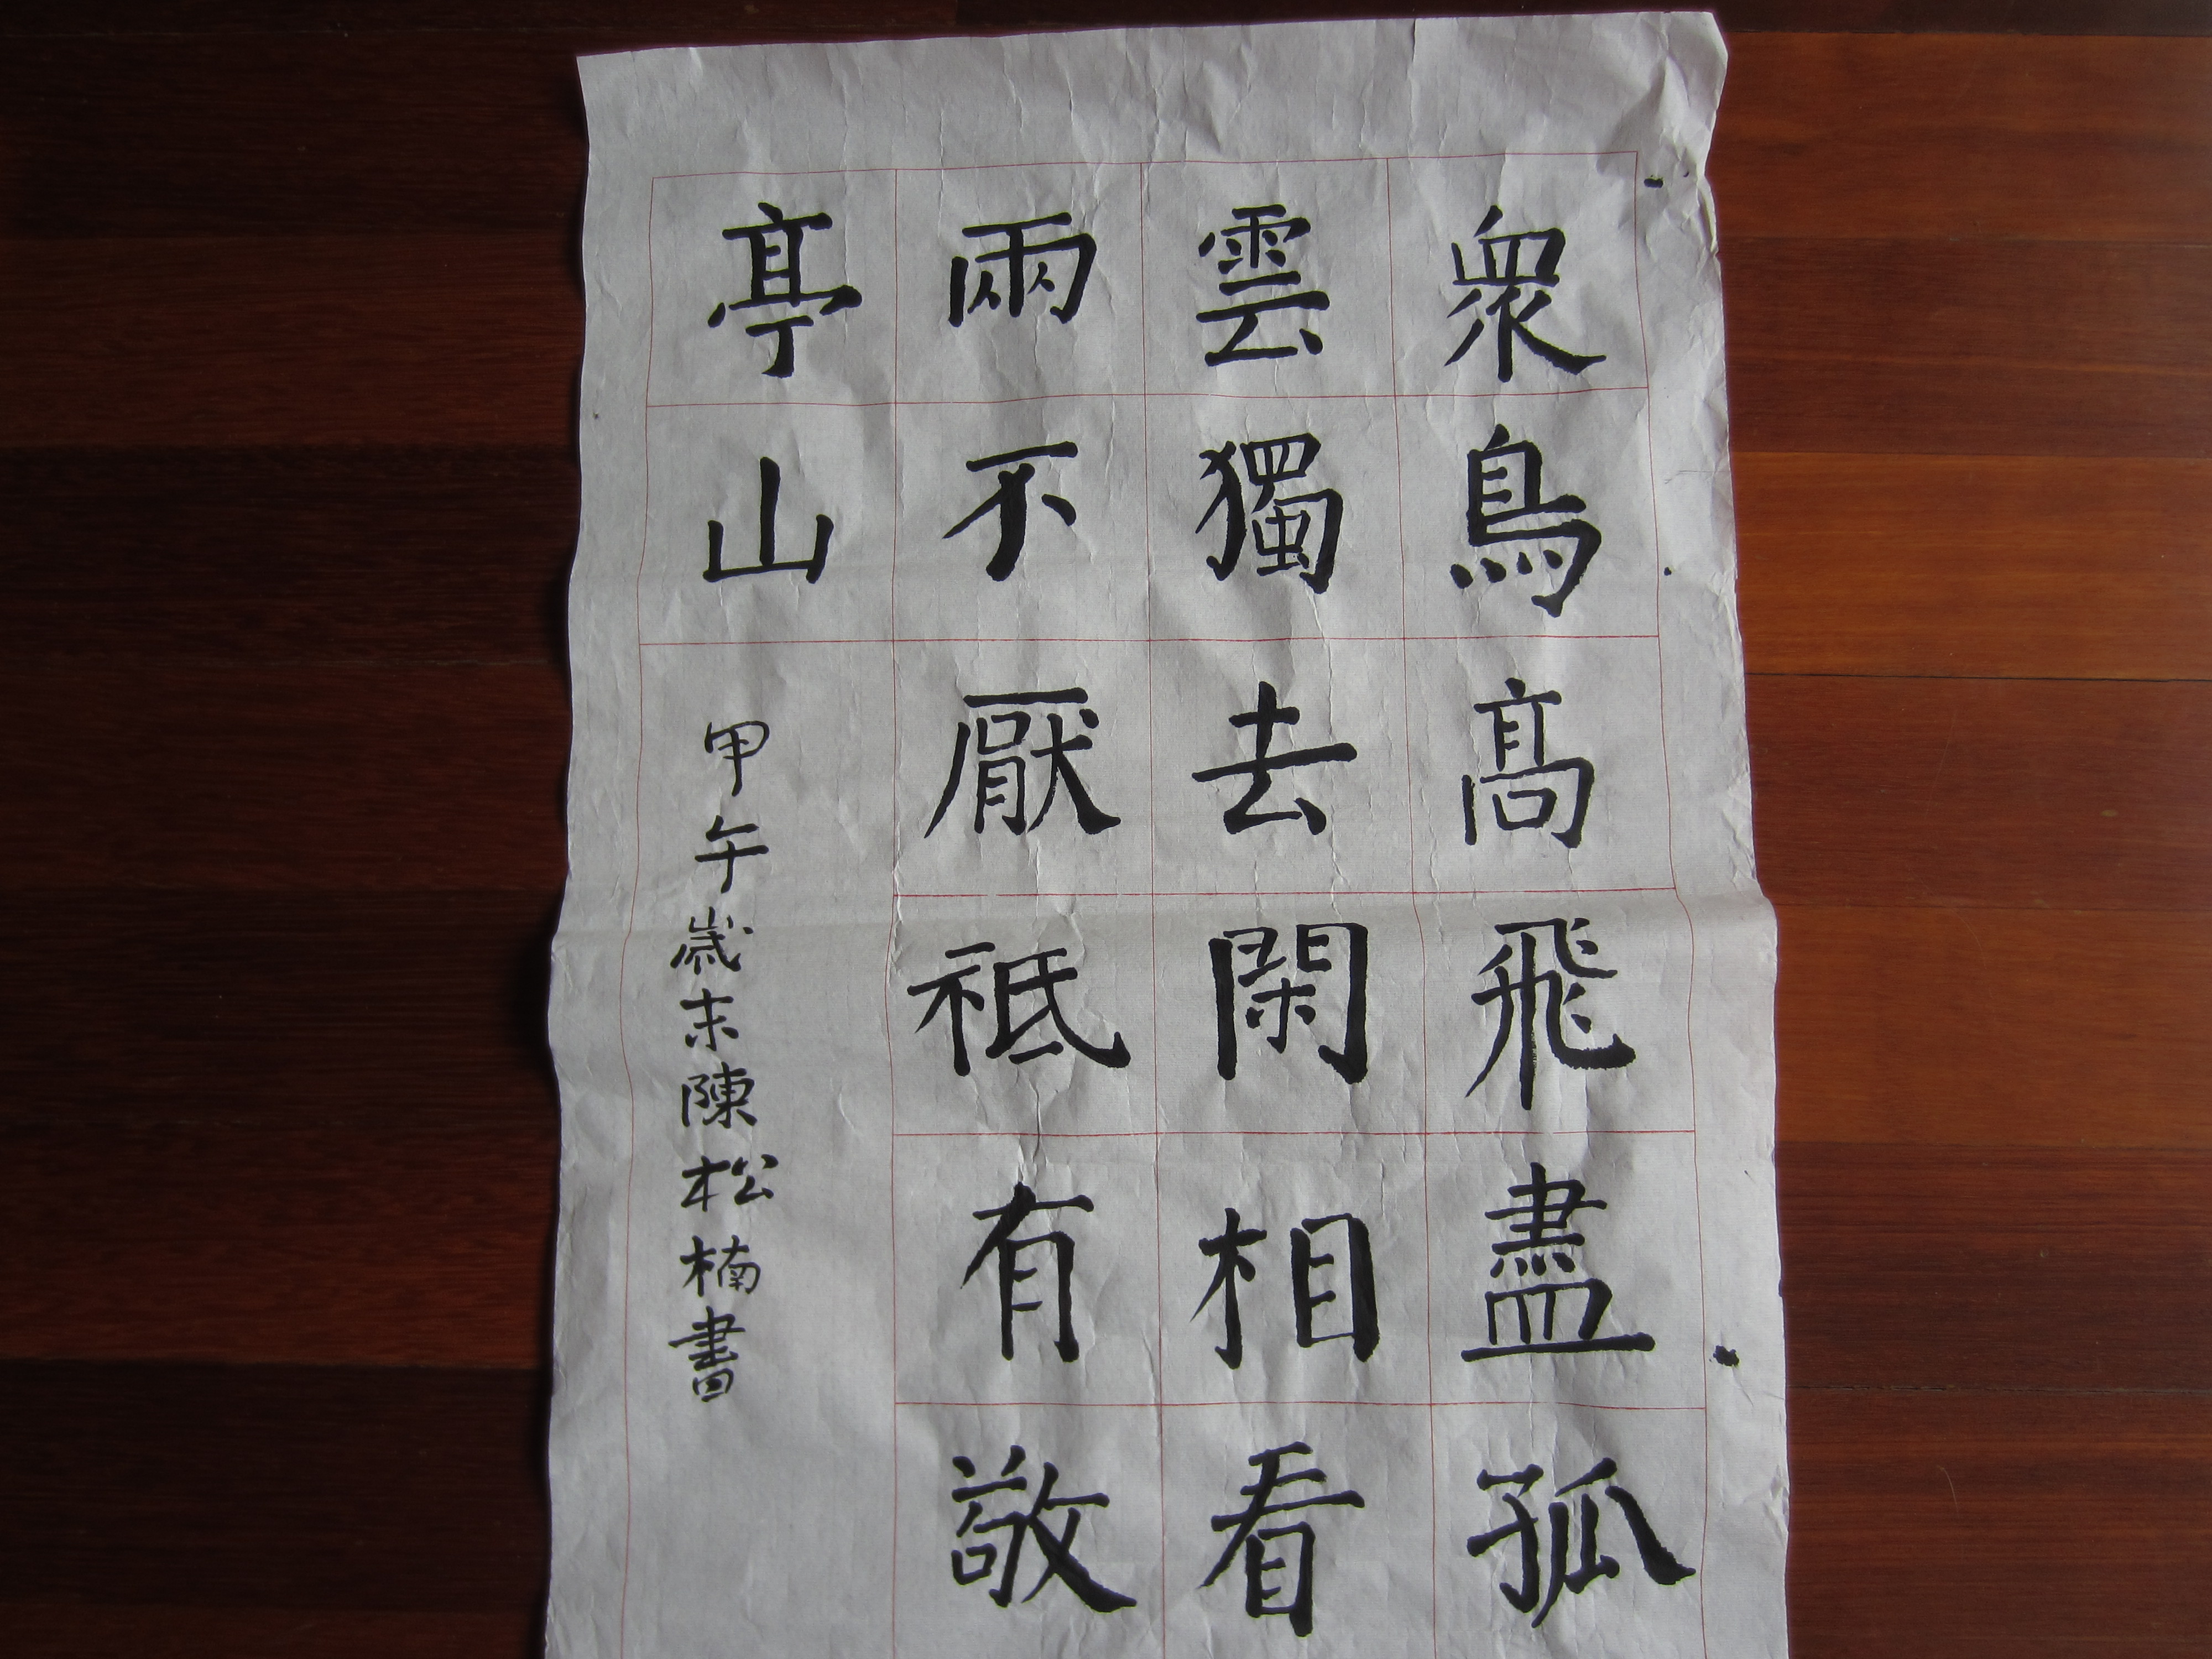 衆鳥高飛盡孤
雲獨去閑相看
兩不厭祗有敬
亭山
甲午歲末陳松楠書